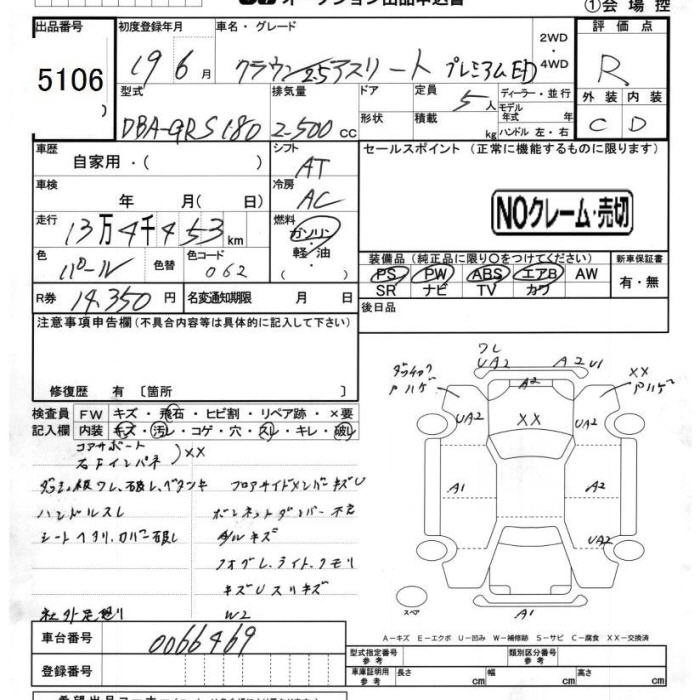 ①会場控
出品番号 初度登録年月 車名・グレード 評価点
5106 19 6月 クラウン 2.5アスリート プレミアムED 2WD・4WD R
型式 排気量 ドア 定員 ディーラー・並行 外装 内装
DBA-GRS180 2-500cc 形状 積載 5人 kg モデル年式 年 ハンドル 左・右 C D
車歴 シフト セールスポイント (正常に機能するものに限ります)
自家用・( ) AT
車検 冷房
年 月( 日) AC NOクレーム・売切
走行 燃料
13万4千453km ガソリン・軽油
装備品(純正品に限り○をつけてください) 新車保証書
色 色替 色コード PS PW ABS エアB AW 有・無
パール 062 SR ナビ TV カワ
R券 14,350円 名変通知期限 月 日 後日品
注意事項申告欄(不具合内容等は具体的に記入して下さい)
修復歴 有〔箇所 〕
検査員記入欄 FW キズ・飛石・ヒビ割・リペア跡・×要
内装 キズ・汚レ・コゲ・穴・スレ・キレ・破レ
コアサポート
右Fインパネ XX
フロアサイドメンバーキズU
ハンドルスレ ボンネットダンパー不良
アルミキズ
フォグレ、ライト、クモリ
キズUスリキズ
W2
ワレ
UA2 A2 U1
A2
XX
UA2 XX UA2
A1 A2
UA2
スペア A1
A-キズ E-エクボ U-凹み W-補修跡 S-サビ C-腐食 XX-交換済
車台番号 0066469
型式指定番号 参考 類別区分番号 参考
登録番号 車庫証明用 参考 長さ cm 幅 cm 高さ cm